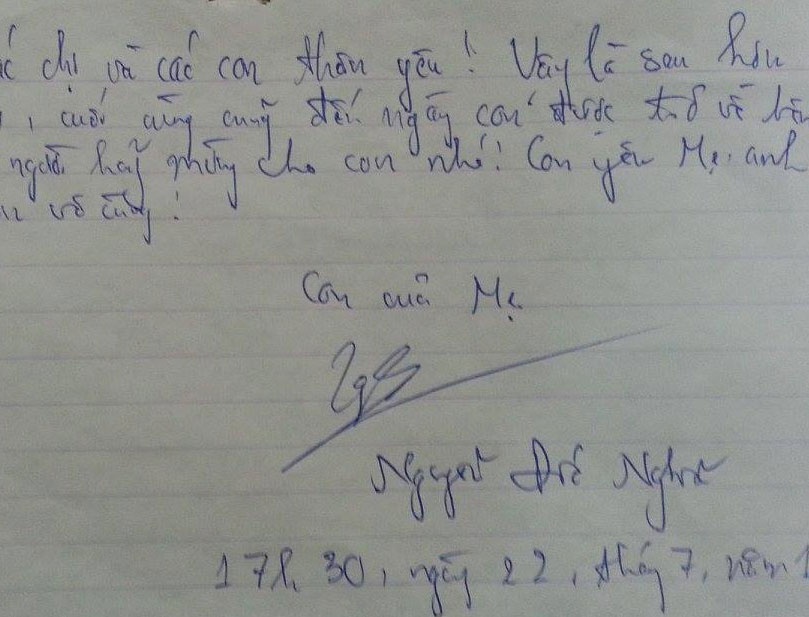 chị và các con thân yêu! Vậy là sau hơn
, cuối cùng cũng đến ngày con được trở về bên
người hãy mừng cho con nhé! Con yêu Mẹ, anh
vô cùng!
Con của Mẹ
Nguyễn Đức Nghĩa
17h, 30, ngày 22, tháng 7, năm